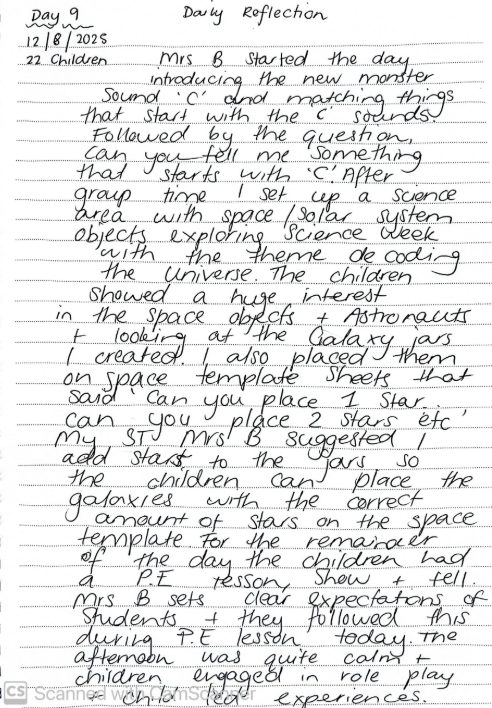 Day 9 Daily Reflection
12/8/2025
22 Children Mrs B. started the day
introducing the new monster
Sound 'C' and matching things
that start with the 'c' sounds.
Followed by the question,
can you tell me 'something
that starts with 'C'. After
group time I set up a science
area with space/solar system
objects exploring Science Week
with the theme de coding
the universe. The children
showed a huge interest
in the space objects + Astronauts
+ looking at the Galaxy jars
I created. I also placed them
on space template sheets that
said 'Can you place 1 star.
can you place 2 stars etc'
My ST Mrs B suggested I
add stars to the jars so
the children can place the
galaxies with the correct
amount of stars on the space
template. For the remainder
of the day the children had
a P.E lesson, Show + tell.
Mrs B sets clear expectations of
Students + they followed this
during P.E lesson today. The
afternoon was quite calm +
children engaged in role play
+ child led experiences.
CS Scanned with CamScanner